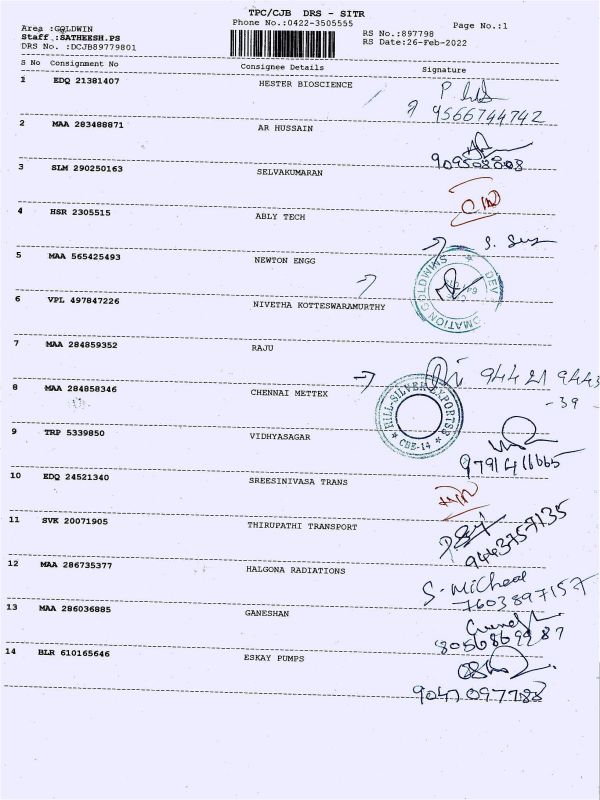 TPC/CJB DRS - SITR
Phone No.:0422-3505555
Page No.:1
Area :GOLDWIN
Staff :SATHEESH.PS
DRS No. :DCJB89779801
RS No.:897798
RS Date:26-Feb-2022
S No Consignment No Consignee Details Signature
1 EDQ 21381407 HESTER BIOSCIENCE
9566744742
2 MAA 283488871 AR HUSSAIN
3 SLM 290250163 SELVAKUMARAN
4 HSR 2305515 ABLY TECH
5 MAA 565425493 NEWTON ENGG
6 VPL 497847226 NIVETHA KOTTESWARAMURTHY
7 MAA 284859352 RAJU
94421 9443
-39
8 MAA 284858346 CHENNAI METTEK
9 TRP 5339850 VIDHYASAGAR
10 EDQ 24521340 SREESINIVASA TRANS
11 SVK 20071905 THIRUPATHI TRANSPORT
9443757135
12 MAA 286735377 HALGONA RADIATIONS
S. Micheal
7603897157
13 MAA 286036885 GANESHAN
14 BLR 610165646 ESKAY PUMPS